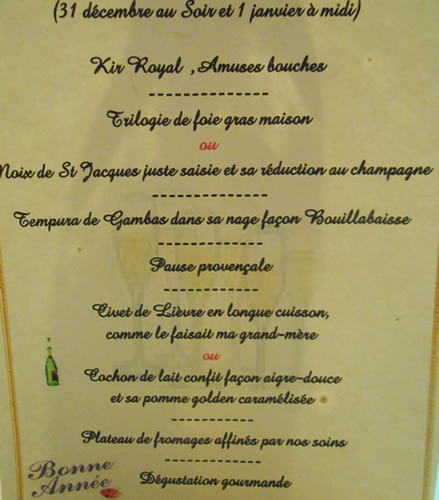 (31 décembre au Soir et 1 janvier à midi)
Kir Royal , Amuses bouches
---------------
Trilogie de foie gras maison
ou
Noix de St Jacques juste saisie et sa réduction au champagne
---------------
Tempura de Gambas dans sa nage façon Bouillabaisse
--------------
Pause provençale
-------------
Civet de Lièvre en longue cuisson,
comme le faisait ma grand-mère
ou
Cochon de lait confit façon aigre-douce
et sa pomme golden caramélisée
-------------
Plateau de fromages affinés par nos soins
---------------
Dégustation gourmande
Bonne
Année